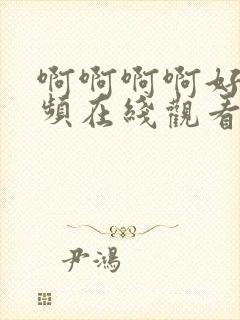 啊啊啊啊好
頻在綫觀看
尹鴻